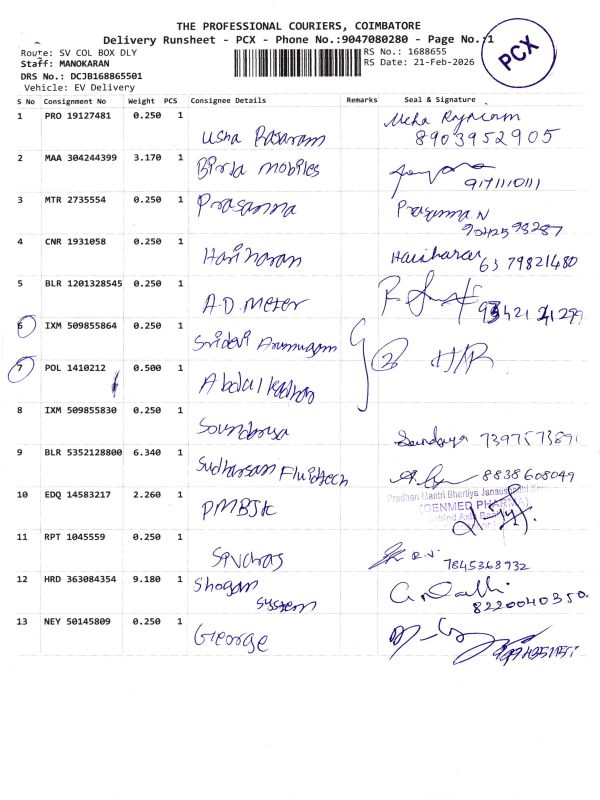 THE PROFESSIONAL COURIERS, COIMBATORE
Delivery Runsheet - PCX - Phone No.:9047080280 - Page No.:1
PCX
Route: SV COL BOX DLY
RS No.: 1688655
Staff: MANOKARAN
RS Date: 21-Feb-2026
DRS No.: DCJB168865501
Vehicle: EV Delivery
S No Consignment No Weight PCS Consignee Details Remarks Seal & Signature
1 PRO 19127481 0.250 1 Usha Rasaram
8903952905
2 MAA 304244399 3.170 1 Birla mobiles
9171110111
3 MTR 2735554 0.250 1 Prasanna Prasanna N
9042593287
4 CNR 1931058 0.250 1 Hariharan Hariharan
6379821480
5 BLR 1201328545 0.250 1 A.D. meter
6 IXM 509855864 0.250 1 Sridevi Arumugam
2 H/R
7 POL 1410212 0.500 1 Abdulkadhar
8 IXM 509855830 0.250 1 Soundarya
Soundarya
9 BLR 5352128800 6.340 1 Sudharsan Fluidtech
8838608049
10 EDQ 14583217 2.260 1 PMBJK
Pradhan Mantri Bhartiya Janaushadhi
(GENMED PHARMA)
11 RPT 1045559 0.250 1
R.V.
7845368932
12 HRD 363084354 9.180 1 Shogan
System
8220040350
13 NEY 50145809 0.250 1 George